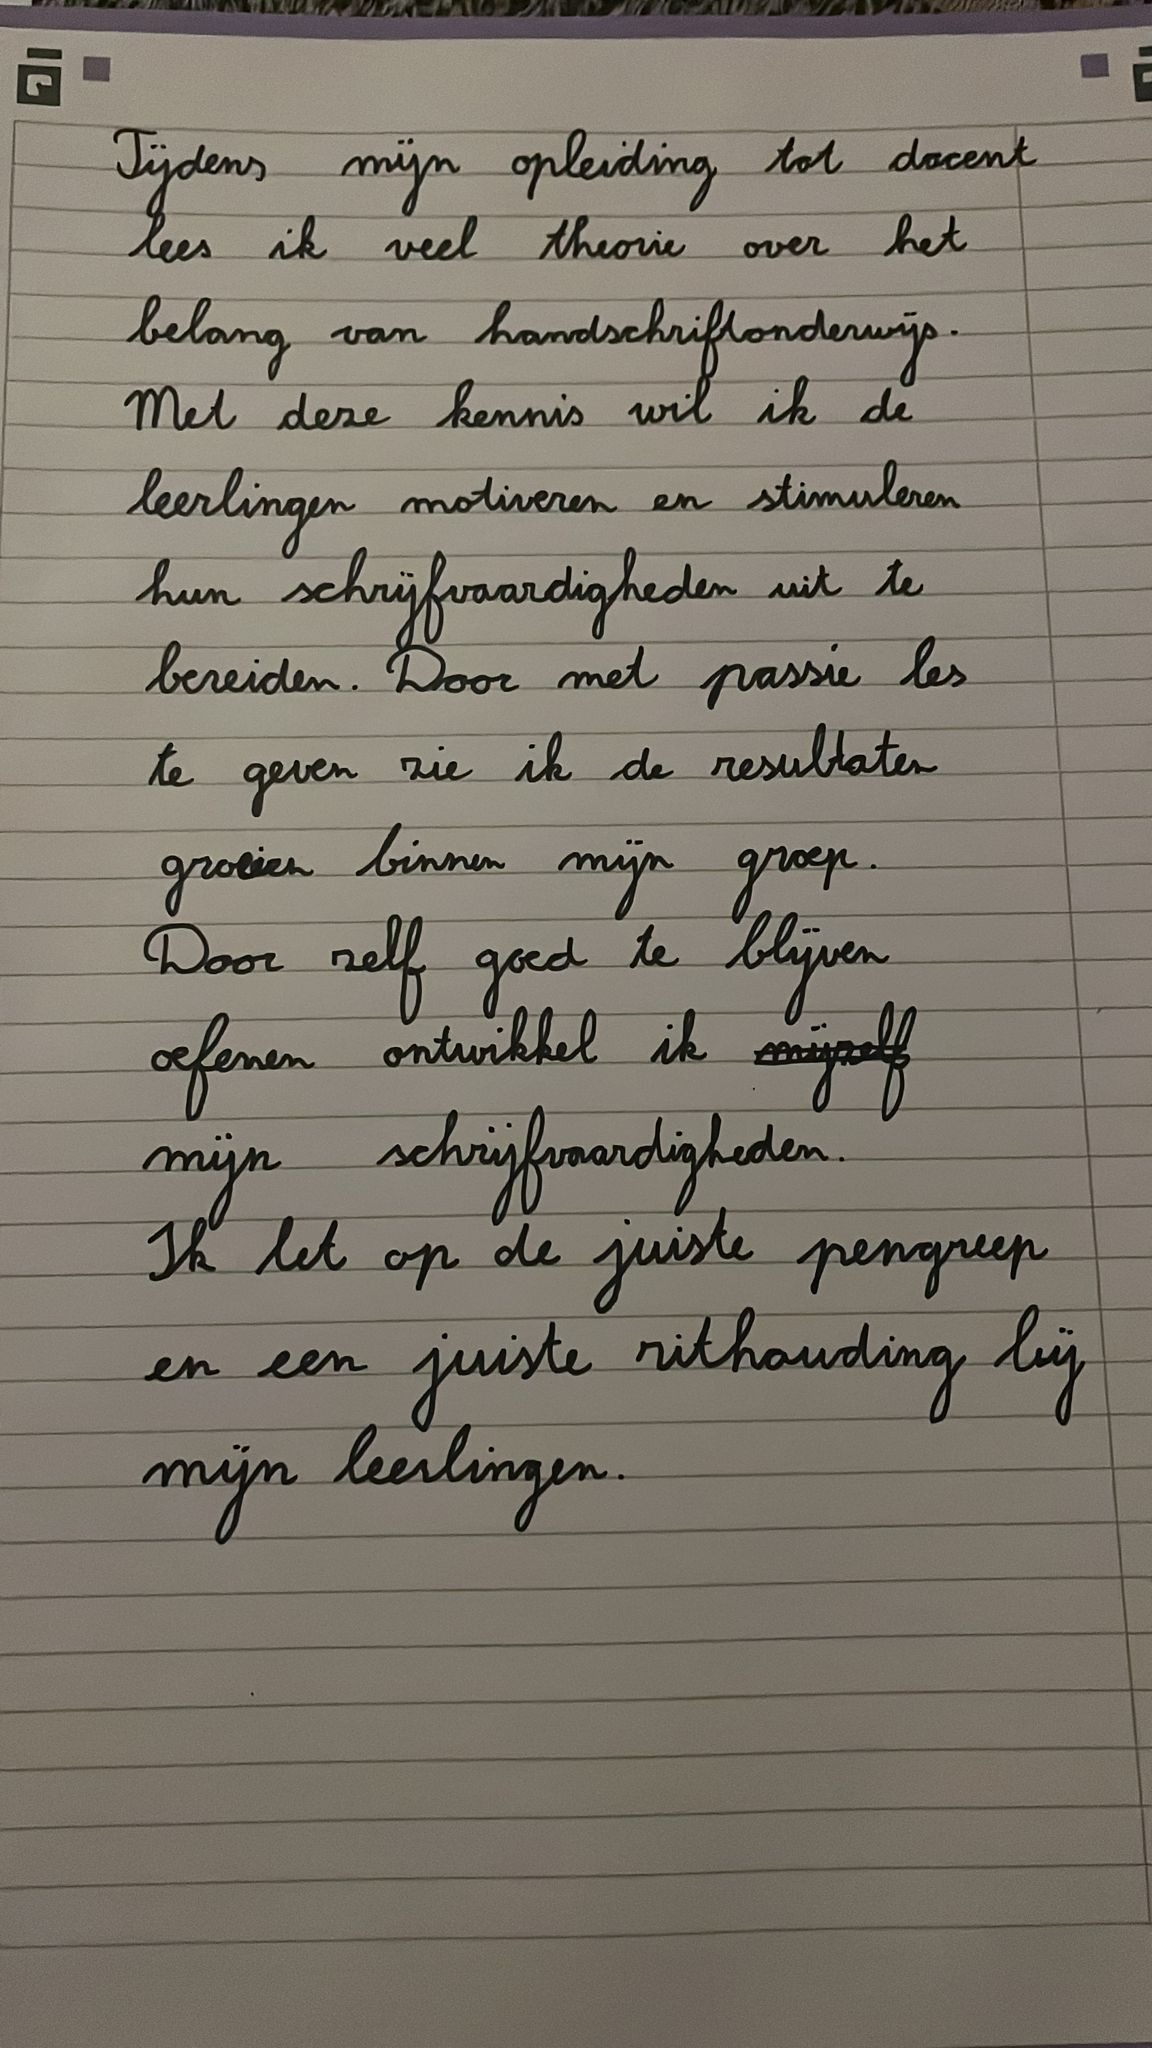 Tijdens mijn opleiding tot docent
lees ik veel theorie over het
belang van handschriftonderwijs.
Met deze kennis wil ik de
leerlingen motiveren en stimuleren
hun schrijfvaardigheden uit te
bereiden. Door met passie les
te geven zie ik de resultaten
groeien binnen mijn groep.
Door zelf goed te blijven
oefenen ontwikkel ik mijzelf
mijn schrijfvaardigheden.
Ik let op de juiste pengreep
en een juiste zithouding bij
mijn leerlingen.